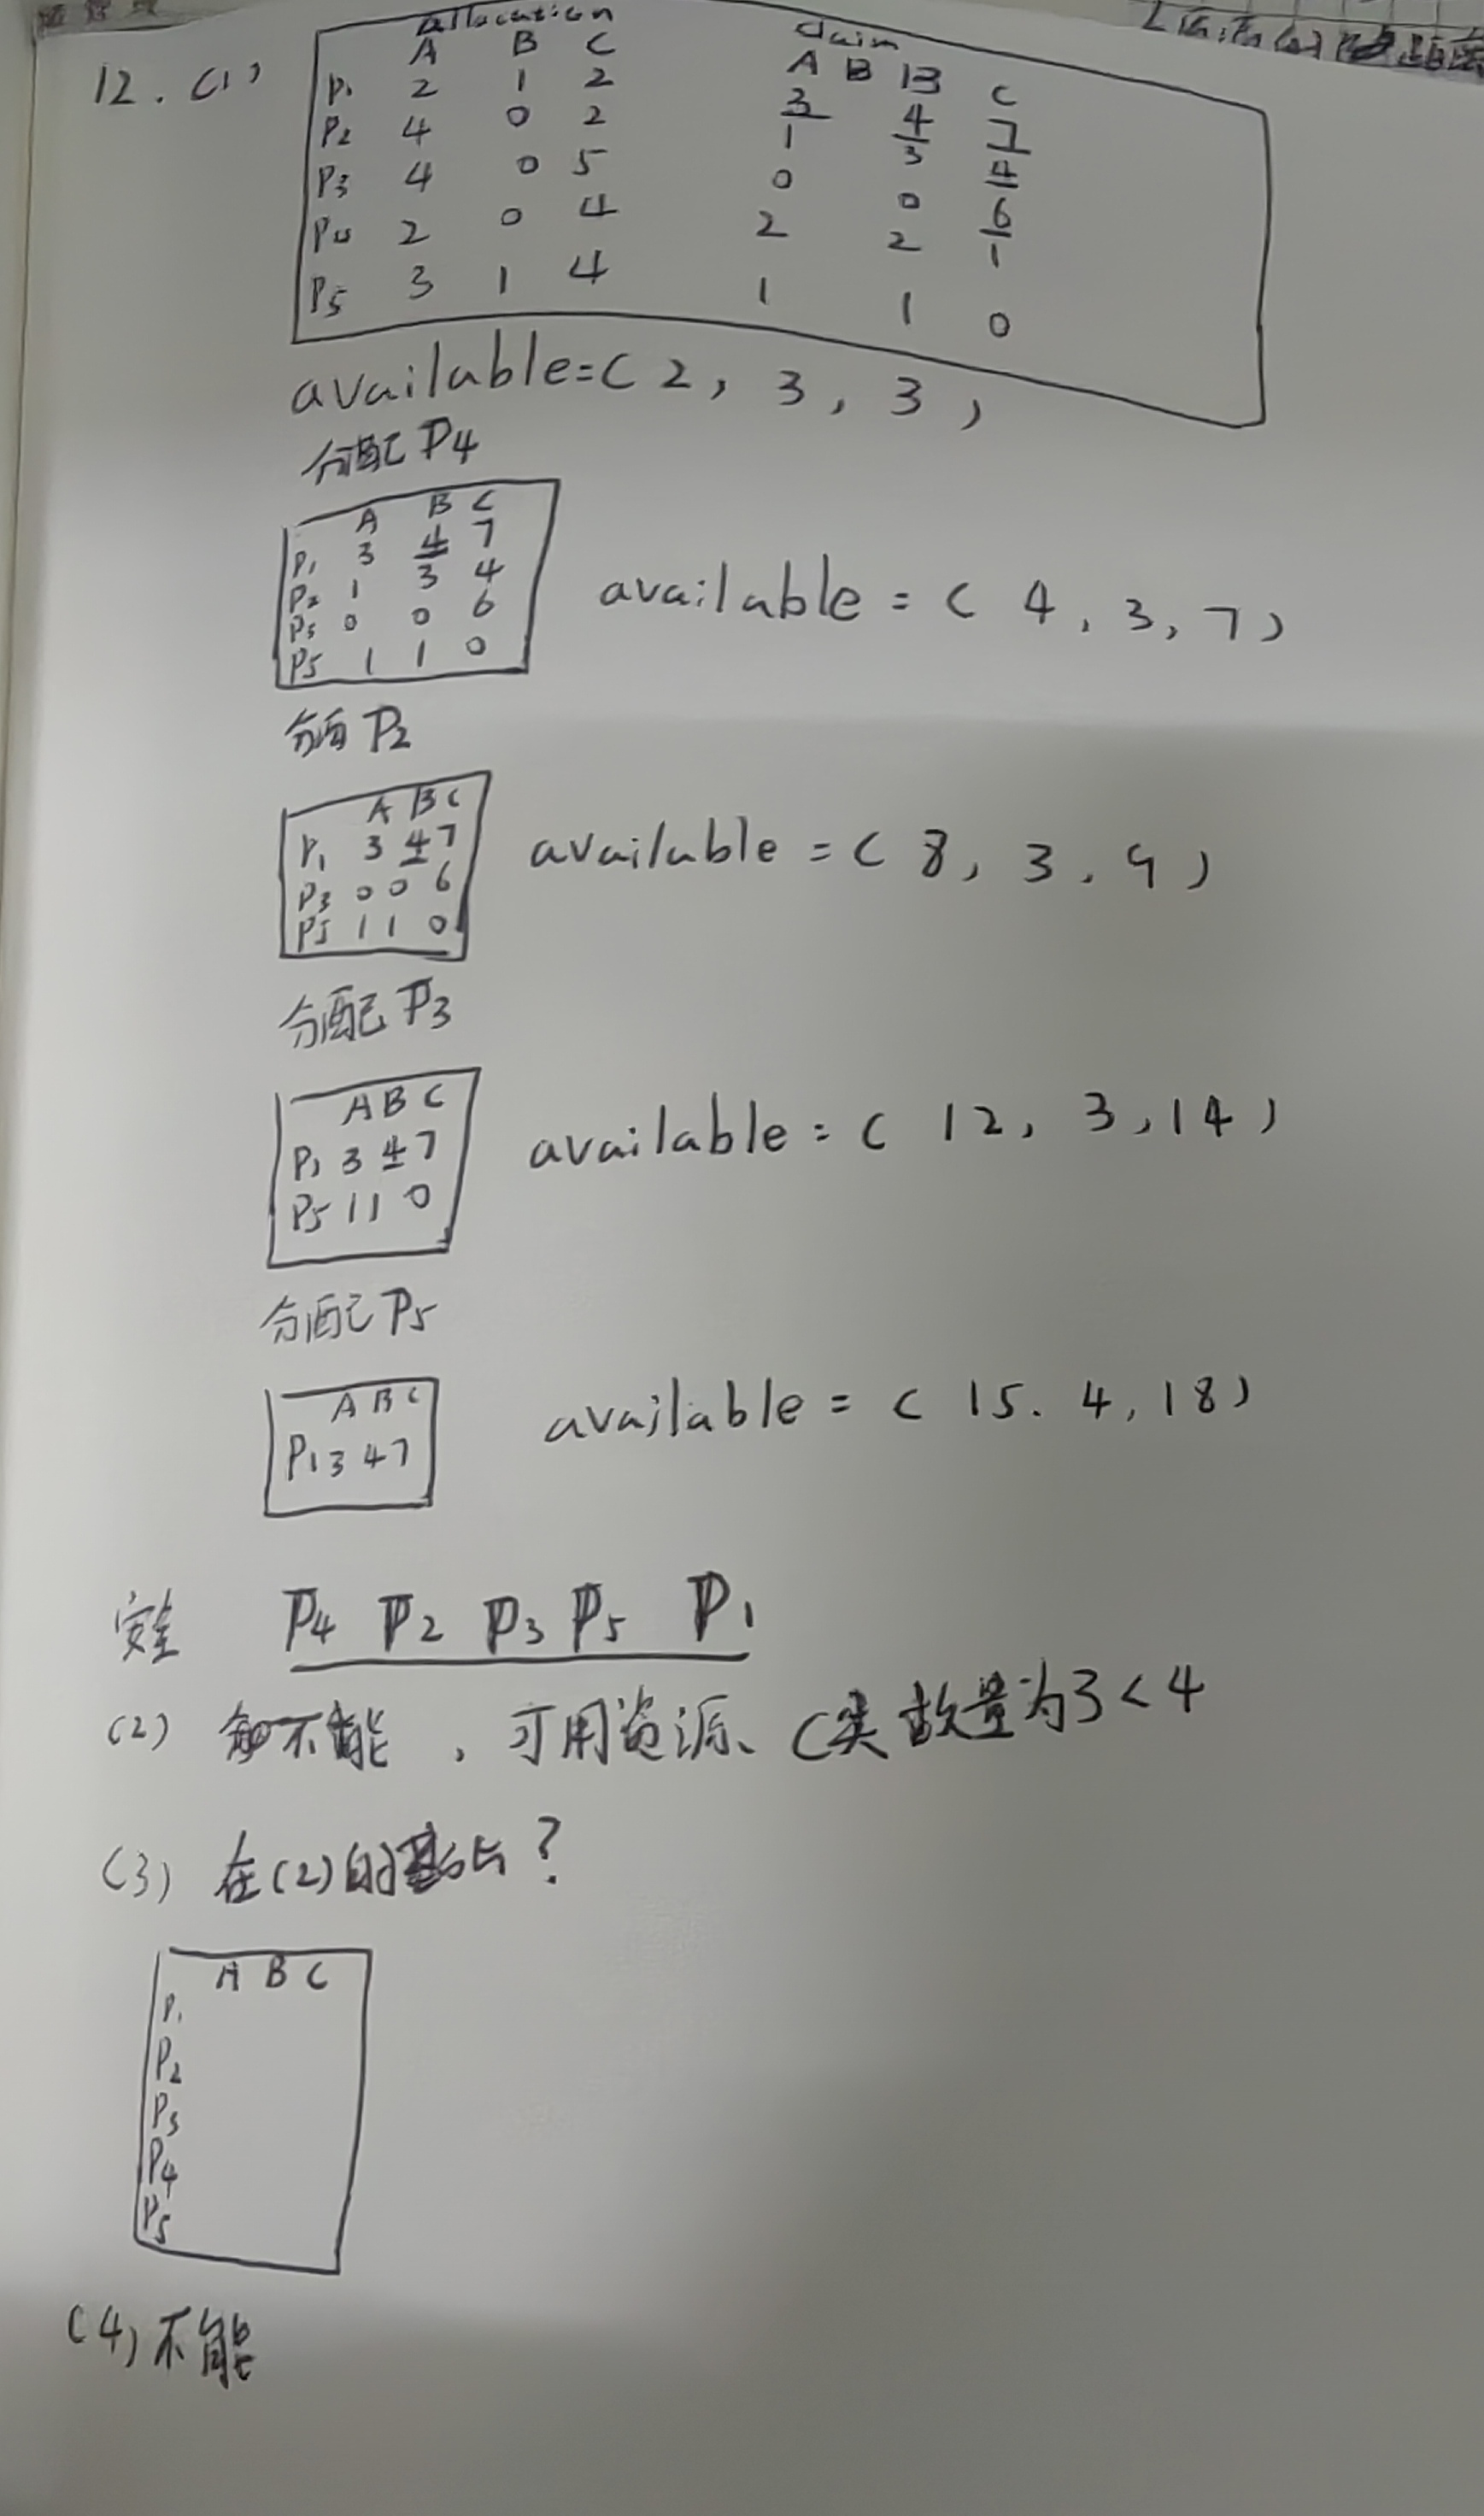 12. (1)
Allocation Claim
A B C A B B C
P1 2 1 2 3 4 7
P2 4 0 2 1 3 4
P3 4 0 5 0 0 6
P4 2 0 4 2 2 1
P5 3 1 4 1 1 0
available=(2,3,3)
分配P4
A B C
P1 3 4 7
P2 1 3 4
P3 0 0 6
P5 1 1 0
available=(4,3,7)
分配P2
A B C
P1 3 4 7
P3 0 0 6
P5 1 1 0
available=(8,3,9)
分配P3
A B C
P1 3 4 7
P5 1 1 0
available=(12,3,14)
分配P5
A B C
P1 3 4 7
available=(15.4,18)
安全 P4 P2 P3 P5 P1
(2) 不能,可用资源、C类数量为3<4
(3) 在(2)的基础上?
A B C
P1
P2
P3
P4
P5
(4) 不能